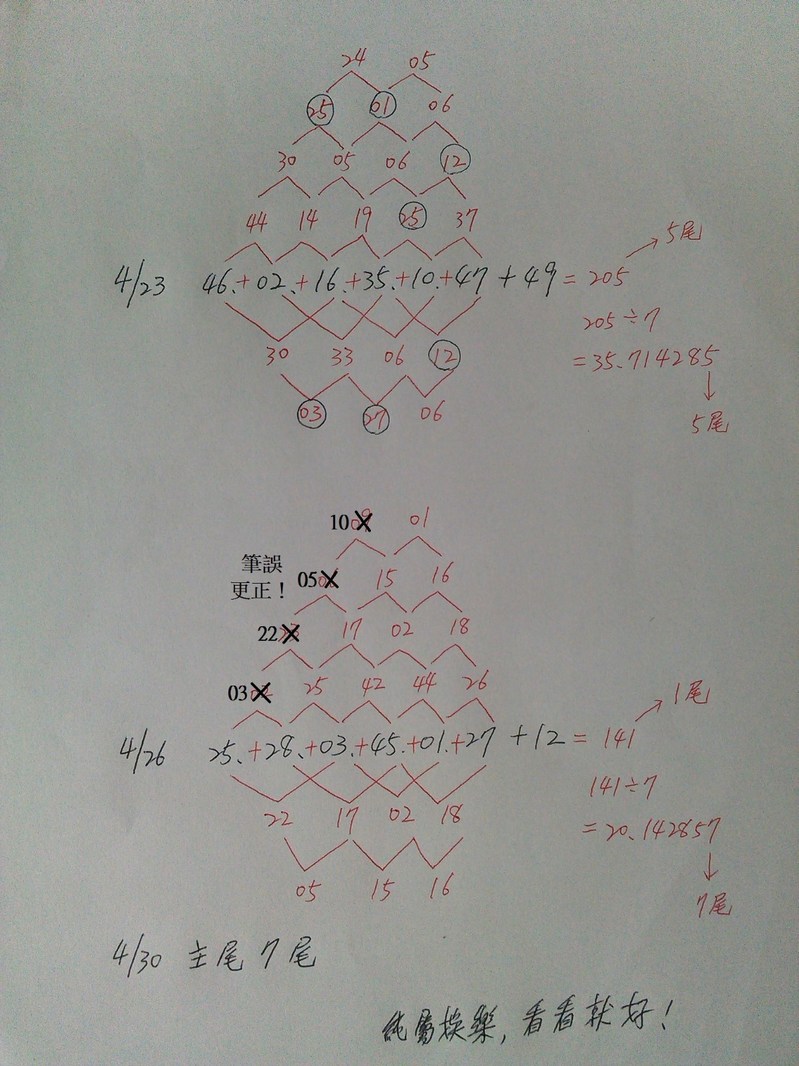 24 05
25 01 06
30 05 06 12
44 14 19 25 37
5尾
4/23 46.+02.+16.+35.+10.+47 +49 = 205
205÷7
30 33 06 12
=35.714285
03 27 06
5尾
10 01
筆誤
更正!
05 15 16
22 17 02 18
03 25 42 44 26
1尾
4/26 25.+28.+03.+45.+01.+27 +12 = 141
141÷7
22 17 02 18
=20.142857
05 15 16
7尾
4/30 主尾7尾
純屬娛樂,看看就好!